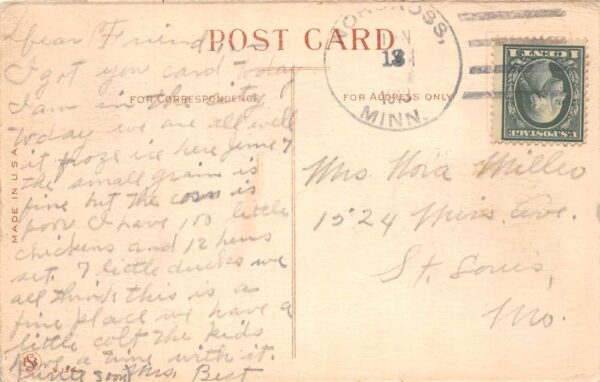 POST CARD
FOR CORRESPONDENCE
FOR ADDRESS ONLY
MADE IN U.S.A.
Dear Friend, -
I got you card today
I am in the city
today we are all well
it froze ice here June 7
the small grain is
fine but the corn is
poor I have 100 little
chickens and 12 hens
set. 7 little ducks we
all think this is a
fine place we have a
little colt the kids
have a time with it.
soon Mrs. Best
NORCROSS,
MINN.
1 CENT 1
U.S. POSTAGE
Mrs Nora Miller
1524 Ave.
St. Louis,
Mo.